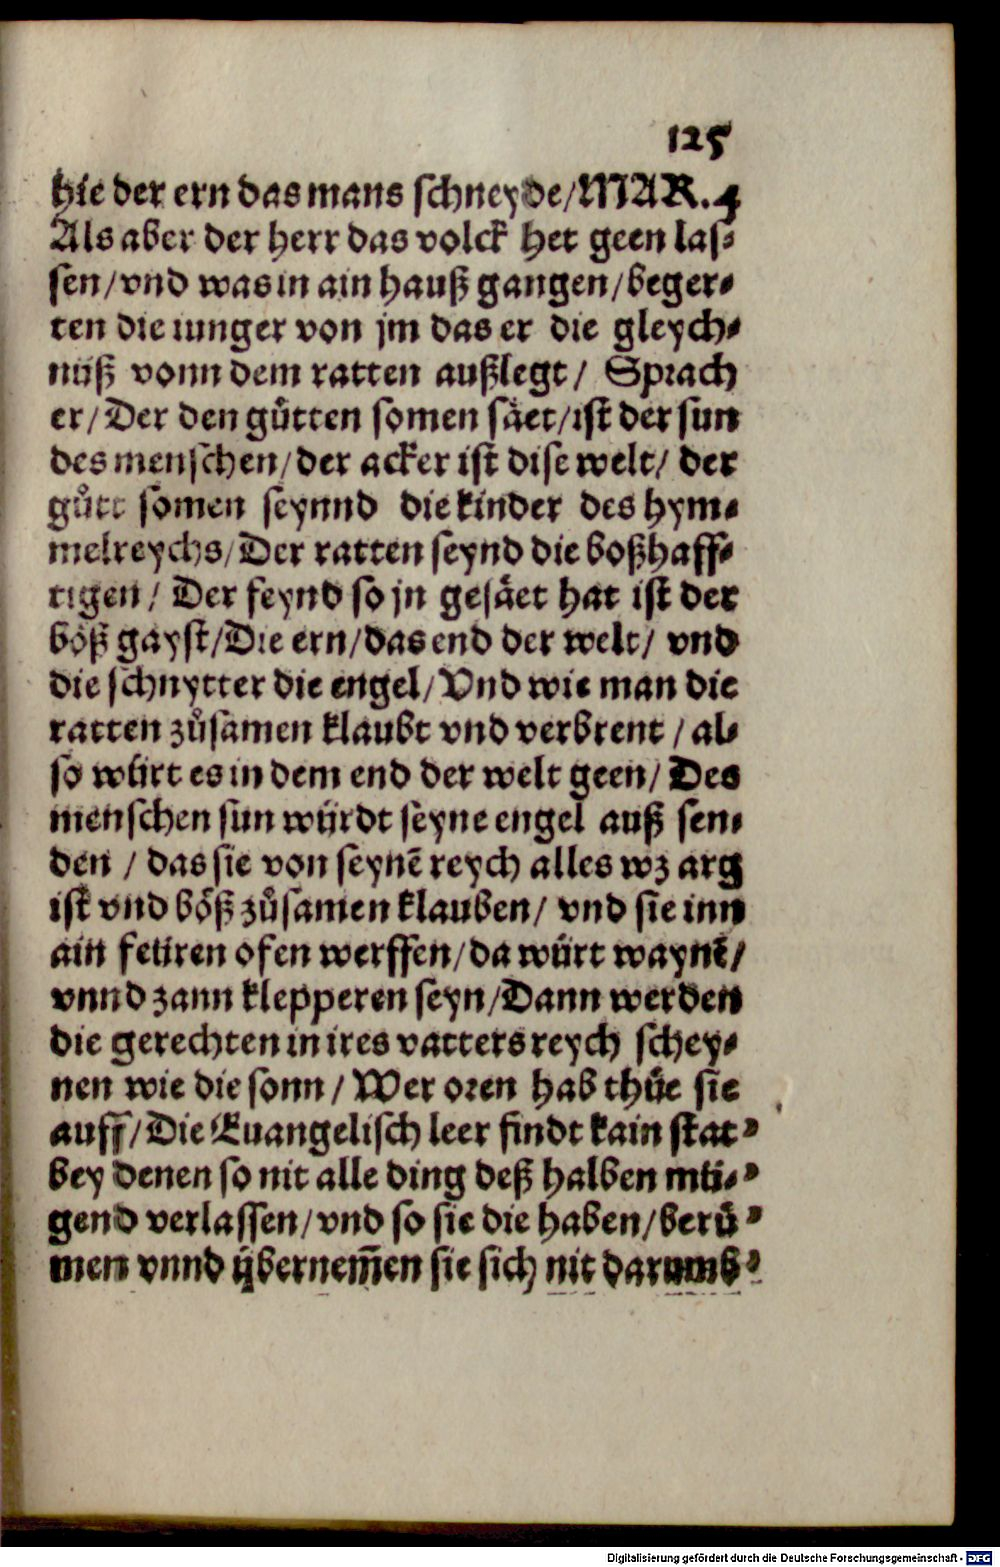 125
hie der ern das mans schneyde/MAR.4
Als aber der herr das volck het geen las⸗
sen/vnd was in ain hauß gangen/beger⸗
ten die iunger von jm das er die gleych⸗
nüß vonn dem ratten außlegt/ Sprach
er/Der den gůtten somen säet/ist der sun
des menschen/der acker ist dise welt/ der
gůtt somen seynnd die kinder des hym⸗
melreychs/Der ratten seynd die boßhaff⸗
tigen/ Der feynd so jn gesäet hat ist der
böß gayst/Die ern/das end der welt/ vnd
die schnytter die engel/Vnd wie man die
ratten zůsamen klaubt vnd verbrent/al⸗
so würt es in dem end der welt geen/Des
menschen sun würdt seyne engel auß sen⸗
den/das sie von seynē reych alles wz arg
ist vnd böß zůsamen klauben/ vnd sie inn
ain feüren ofen werffen/da würt waynē/
vnnd zann klepperen seyn/Dann werden
die gerechten in ires vatters reych schey⸗
nen wie die sonn/Wer oren hab thüe sie
auff/Die Euangelisch leer findt kain stat⸗
bey denen so nit alle ding deß halben mü⸗
gend verlassen/vnd so sie die haben/berü⸗
men vnnd übernem̄en sie sich nit darumb⸗
Digitalisierung gefördert durch die Deutsche Forschungsgemeinschaft - DFG